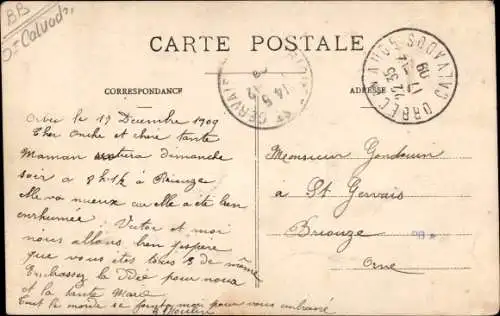 BB
Calvados
CARTE POSTALE
CORRESPONDANCE
ADRESSE
ORBEC CALVADOS
17 -12 09
ST GERVAIS
14 5
12
Orbec le 17 Décembre 1909
Cher Oncle et chère tante
Maman dimanche
soir à 8 h ½ à Briouze
Elle va mieux car elle a été bien
enrhumée. Victor et moi
nous allons bien j'espère
que vous êtes tous 3 de même
Embrassez la pour nous
et la tante Marie
Tout le monde se joint à moi pour vous embrasser
Monsieur Gondouin
a St Gervais
Briouze
Orne